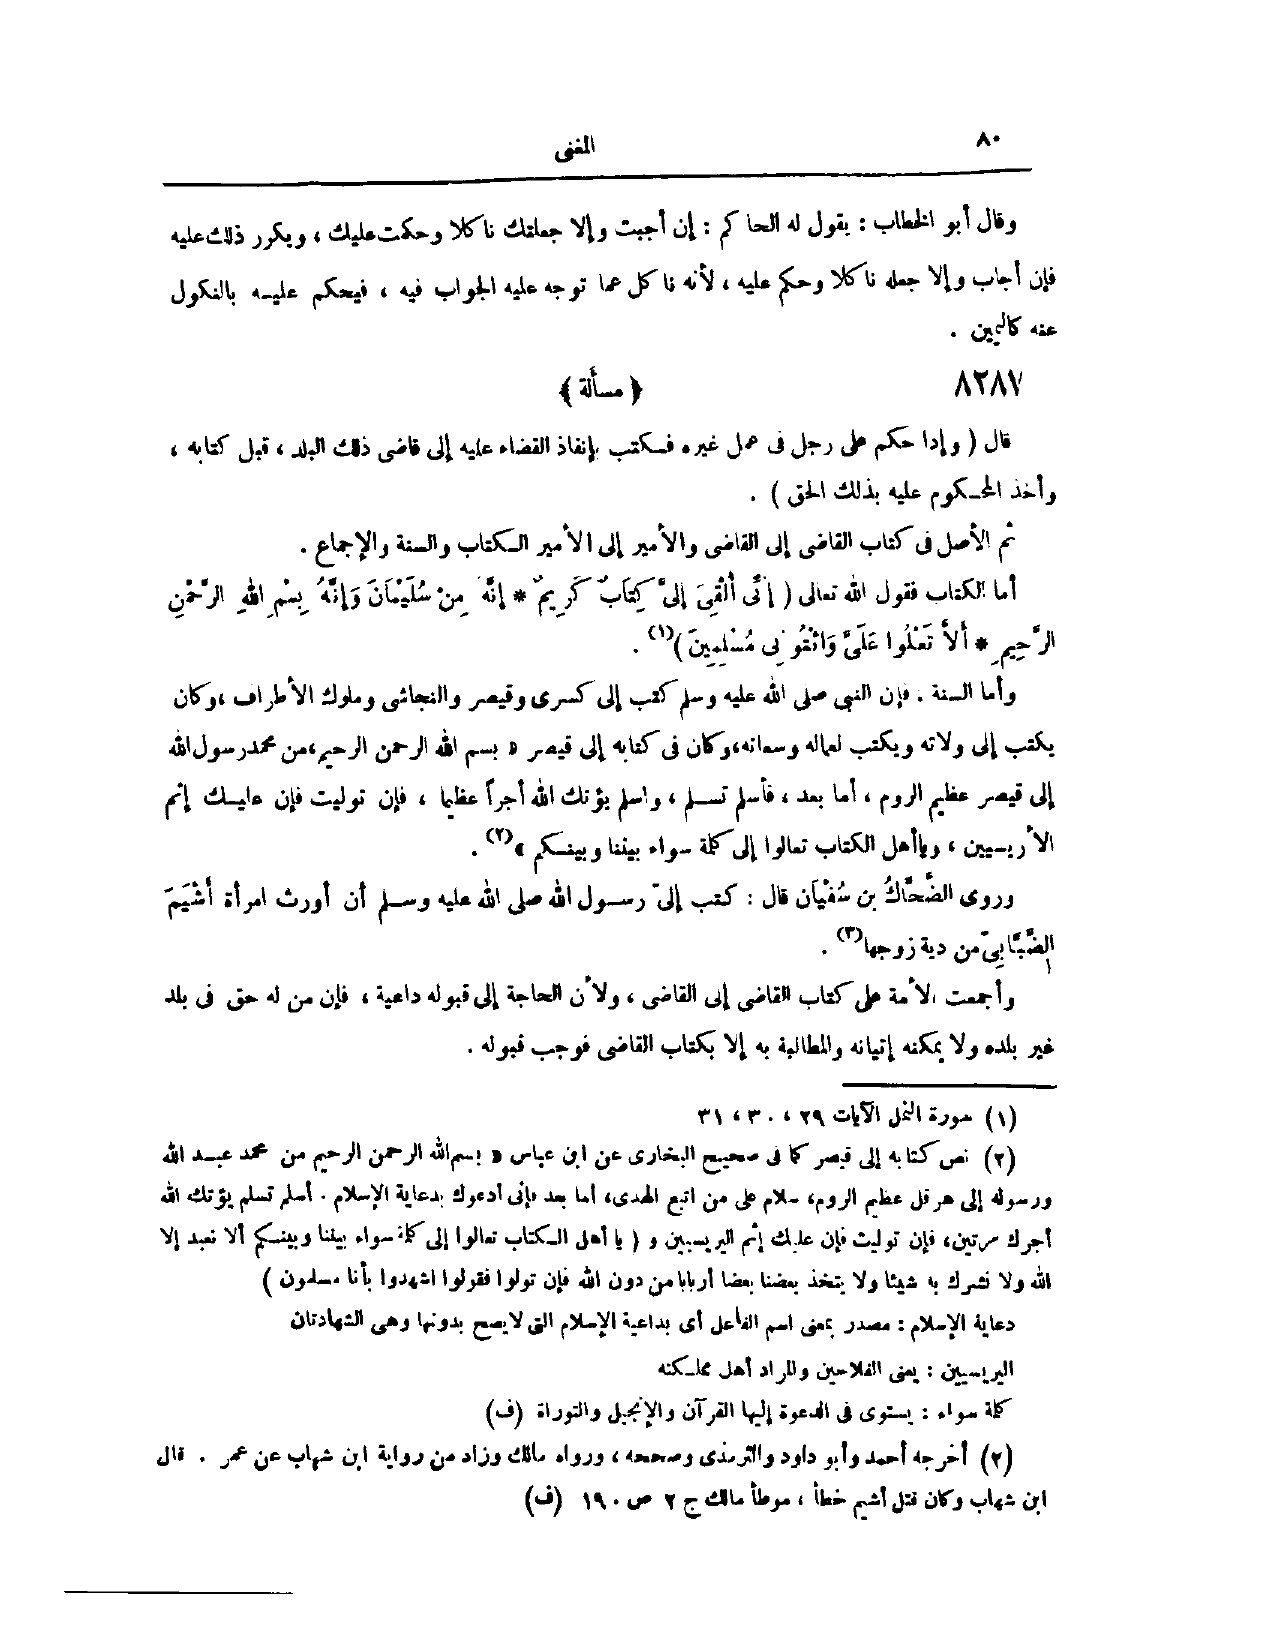 ٨٠
المغنى
وقال أبو الخطاب : يقول له الحاكم : إن أجبت وإلا جعلتك ناكلا وحكمت عليك ، ويكرر ذلك عليه
فإن أجاب وإلا جعله ناكلا وحكم عليه ، لأنه ناكل عما توجه عليه الجواب فيه ، فيحكم عليه بالنكول
عنه كاليمين .
٨٢٨٧
﴿ مسألة ﴾
قال ( وإذا حكم على رجل فى عمل غيره فكتب بإنفاذ القضاء عليه إلى قاضى ذلك البلد ، قبل كتابه ،
وأخذ المحكوم عليه بذلك الحق ) .
ثم الأصل فى كتاب القاضى إلى القاضى والأمير إلى الأمير الكتاب والسنة والإجماع .
أما الكتاب فقول الله تعالى ( إِنِّى أُلْقِىَ إِلَىَّ كِتَابٌ كَرِيمٌ * إِنَّهُ مِنْ سُلَيْمَانَ وَإِنَّهُ بِسْمِ اللهِ الرَّحْمٰنِ
الرَّحِيمِ * أَلاَّ تَعْلُوا عَلَىَّ وَائْتُونِى مُسْلِمِينَ )(١) .
وأما السنة . فإن النبى صلى الله عليه وسلم كتب إلى كسرى وقيصر والنجاشى وملوك الأطراف ،وكان
يكتب إلى ولاته ويكتب لعماله وسعاته،وكان فى كتابه إلى قيصر « بسم الله الرحمن الرحيم،من محمدرسول الله
إلى قيصر عظيم الروم ، أما بعد ، فأسلم تسلم ، واسلم يؤتك الله أجراً عظيما ، فإن توليت فإن عليك إثم
الأريسيين ، ويأهل الكتاب تعالوا إلى كلمة سواء بيننا وبينكم »(٢) .
وروى الضَّحَّاكُ بن سُفْيَان قال : كتب إلىّ رسول الله صلى الله عليه وسلم أن أورث امرأة أَشْيَمَ
الضِّبَّابِىّ من دية زوجها(٣) .
وأجمعت الأمة على كتاب القاضى إلى القاضى ، ولأن الحاجة إلى قبوله داعية ، فإن من له حق فى بلد
غير بلده ولا يمكنه إتيانه والمطالبة به إلا بكتاب القاضى فوجب قبوله .
(١) سورة النمل الآيات ٢٩ ، ٣٠ ، ٣١
(٢) نص كتابه إلى قيصر كما فى صحيح البخارى عن ابن عباس « بسم الله الرحمن الرحيم من محمد عبد الله
ورسوله إلى هرقل عظيم الروم، سلام على من اتبع الهدى، أما بعد فإنى أدعوك بدعاية الإسلام . أسلم تسلم يؤتك الله
أجرك مرتين، فإن توليت فإن عليك إثم اليريسيين و ( يا أهل الكتاب تعالوا إلى كلمة سواء بيننا وبينكم ألا نعبد إلا
الله ولا نشرك به شيئا ولا يتخذ بعضنا بعضا أربابا من دون الله فإن تولوا فقولوا اشهدوا بأنا مسلمون )
دعاية الإسلام : مصدر بمعنى اسم الفاعل أى بداعية الإسلام التى لا يصح بدونها وهى الشهادتان
اليريسيين : يعنى الفلاحين والمراد أهل مملكته
كلمة سواء : يستوى فى الدعوة إليها القرآن والإنجيل والتوراة (ف)
(٢) أخرجه أحمد وأبو داود والترمذى وصححه ، ورواه مالك وزاد من رواية ابن شهاب عن عمر . قال
ابن شهاب وكان قتل أشيم خطأ ، موطأ مالك ج ٢ ص ١٩٠ (ف)